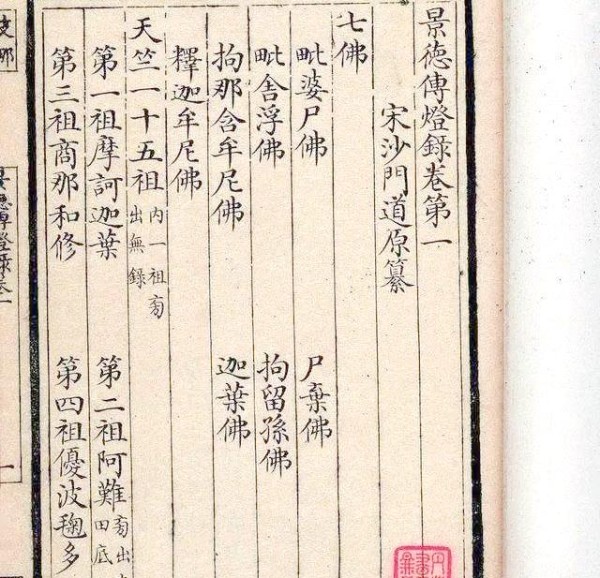 景德傳燈錄卷第一
宋沙門道原纂
七佛
毗婆尸佛 尸棄佛
毗舍浮佛 拘留孫佛
拘那含牟尼佛 迦葉佛
釋迦牟尼佛
天竺一十五祖 內一祖旁出無錄
第一祖摩訶迦葉 第二祖阿難 旁出 田底
第三祖商那和修 第四祖優波毱多